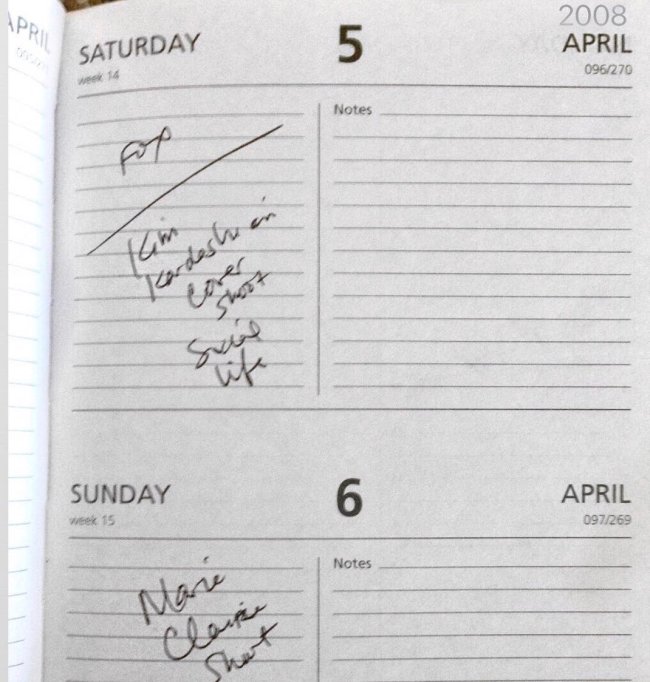 APRIL
2008
SATURDAY 5 APRIL
week 14 096/270
Notes
Kim
Kardashian
Cover
Shoot
Social
Life
SUNDAY 6 APRIL
week 15 097/269
Notes
Marie
Claire
Shoot